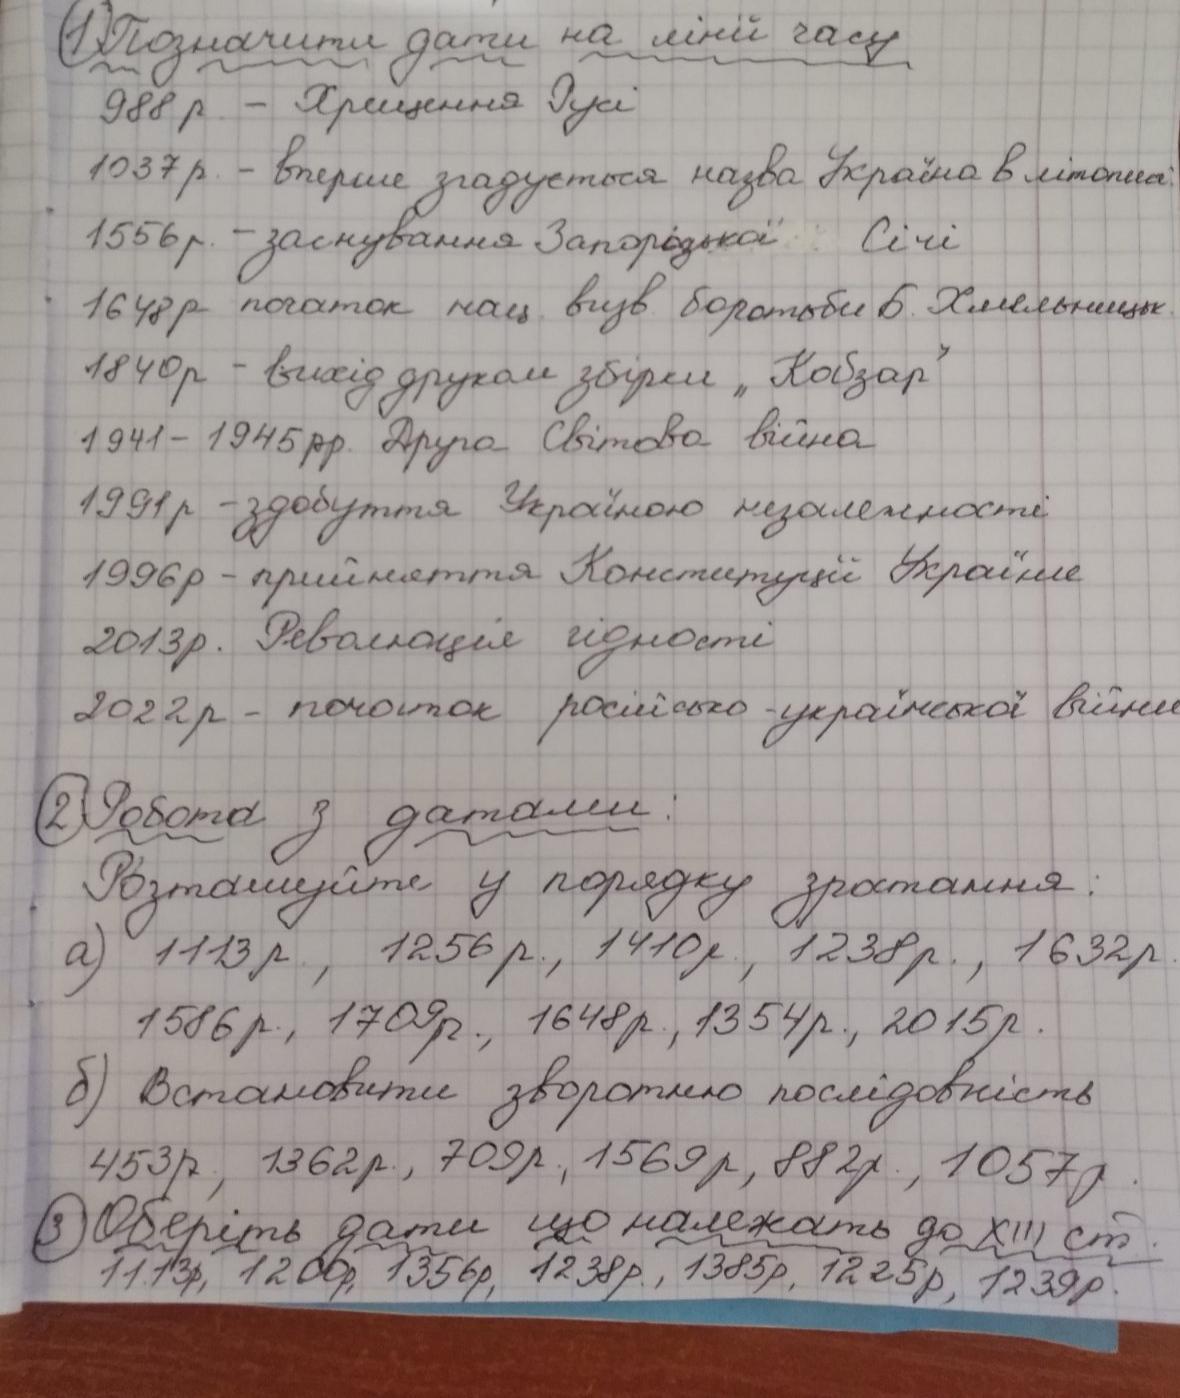 1) Позначити дати на лінії часу
988 р. – Хрещення Русі
1037р. – вперше згадується назва Україна в літописі
1556р. – заснування Запорізької Січі
1648р початок нац. визв. боротьби Б. Хмельницьк.
1840р – вихід друком збірки „Кобзар"
1941 – 1945рр. Друга Світова війна
1991р – здобуття Україною незалежності
1996р – прийняття Конституції Україние
2013р. Революція гідності
2022р – початок російсько-української війни
2) Робота з датами:
Розташуйте у порядку зростання:
а) 1113р., 1256р., 1410р., 1238р., 1632р.
1586р., 1709р., 1648р., 1354р., 2015р.
б) Встановити зворотню послідовність
453р, 1362р., 709р., 1569р, 882р., 1057р.
3) Оберіть дати що належать до XIII ст.
1113р, 1200р, 1356р, 1238р., 1385р, 1225р, 1239р.